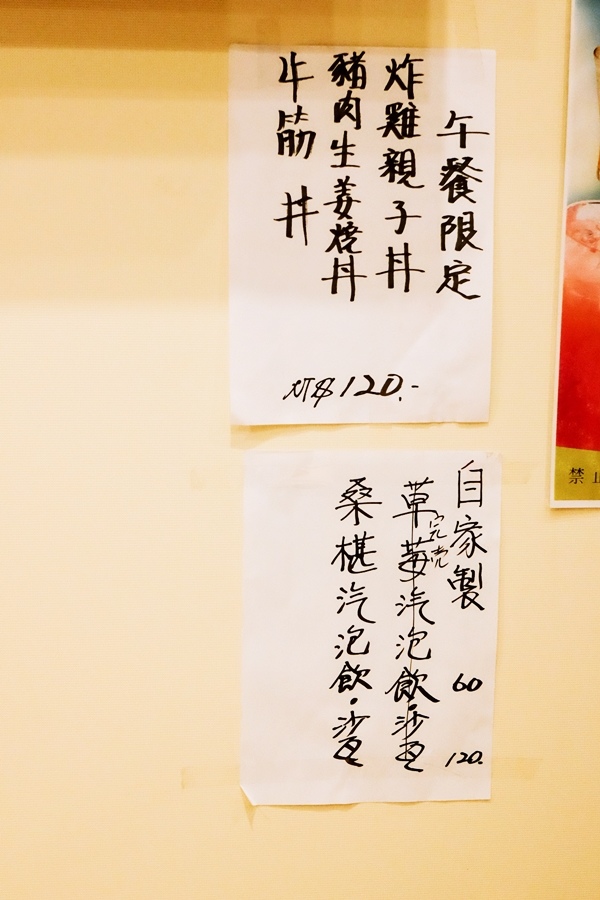 午餐限定
炸雞親子丼
豬肉生姜燒丼
牛筋丼
NT$120.-
自家製 60 120.
草莓汽泡飲·沙
完売
桑椹汽泡飲·沙
禁止